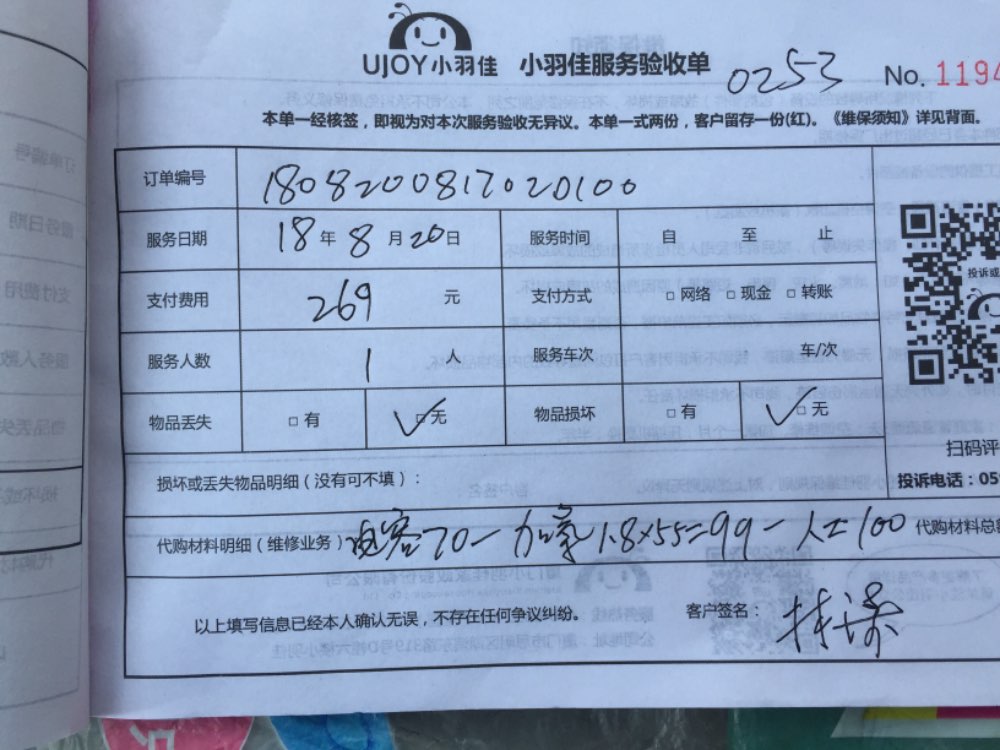 UJOY小羽佳 小羽佳服务验收单 0253 No. 1194
本单一经核签，即视为对本次服务验收无异议。本单一式两份，客户留存一份(红)。《维保须知》详见背面。
订单编号 180820081702010 0
服务日期 18年8月20日 服务时间 自 至 止
支付费用 269 元 支付方式 □网络 □现金 □转账
投诉或
服务人数 1 人 服务车次 车/次
物品丢失 □有 □无 物品损坏 □有 □无
扫码评
损坏或丢失物品明细（没有可不填）：
投诉电话：05
代购材料明细（维修业务） 电容70一加氟1.8×55=99一人工100 代购材料总
以上填写信息已经本人确认无误，不存在任何争议纠纷。 客户签名：